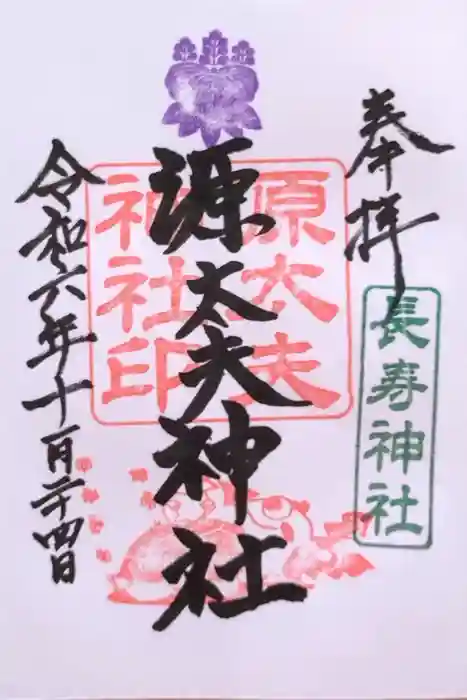 奉拝
長寿神社
源太夫神社
原太夫
神社印
令和六年十月二十四日